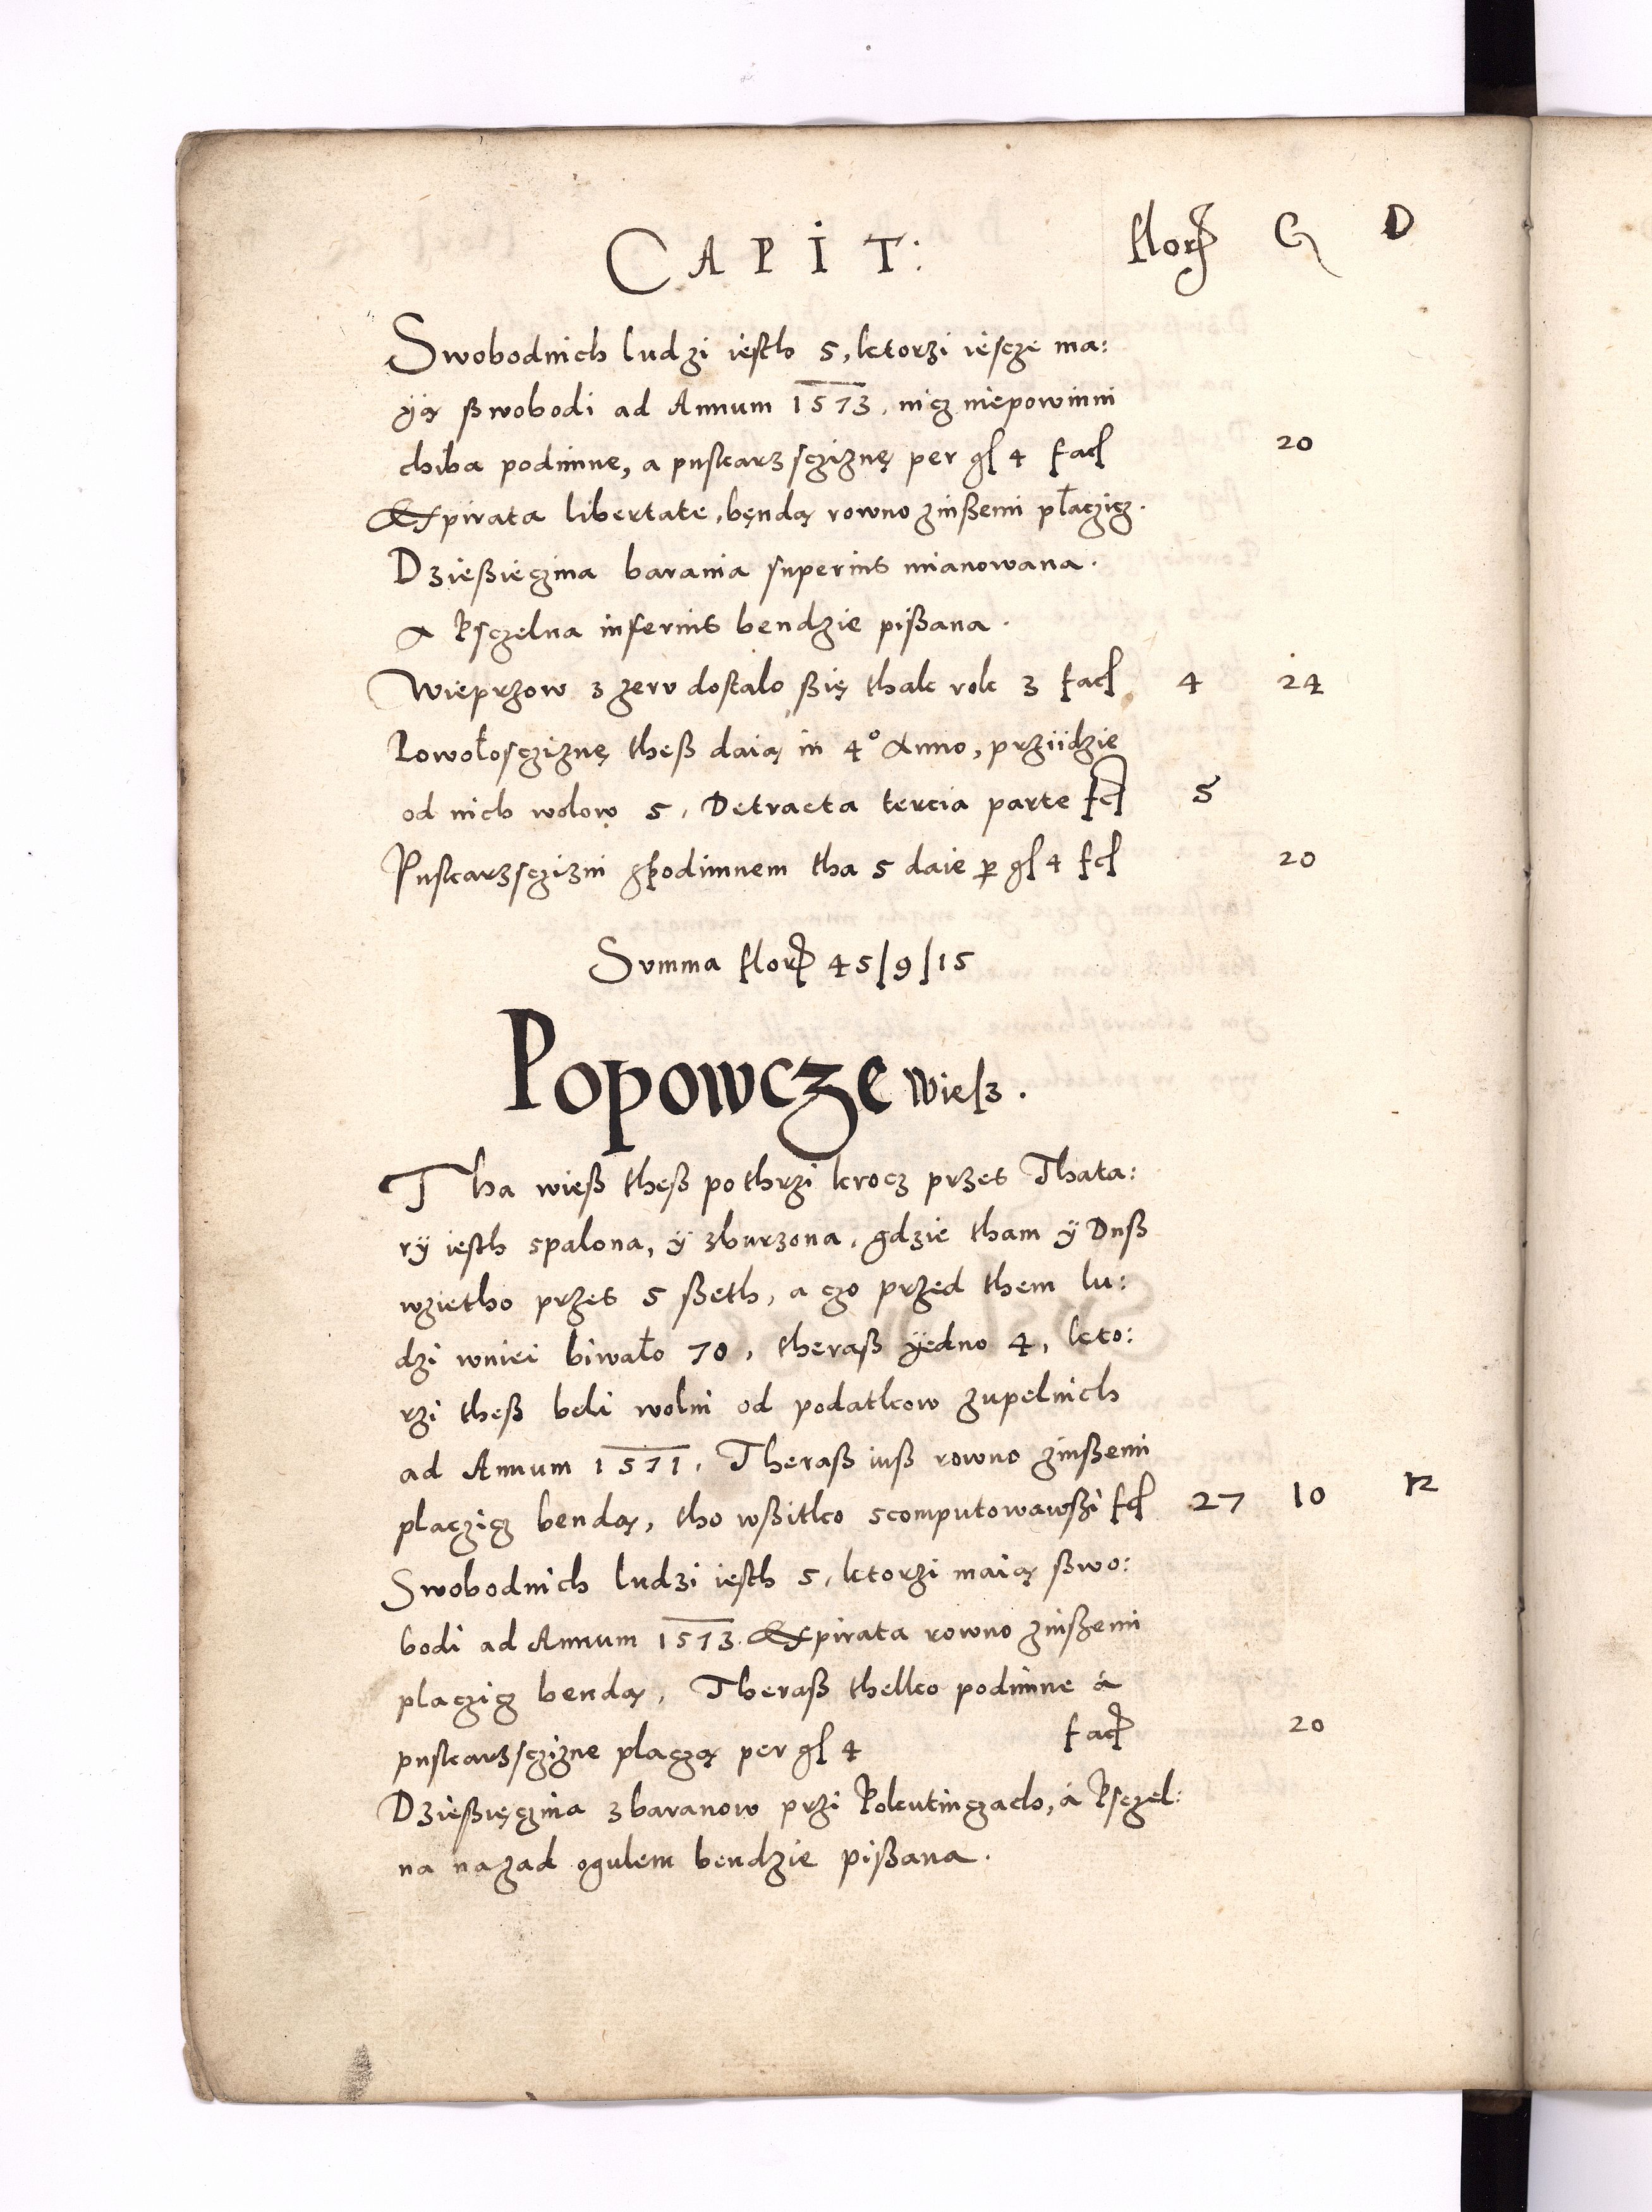 CAPIT: flor G D
Swobodnich ludzi iesth 5, ktorzi iescze ma:
ÿą ßwobodi ad Annum 1573, nicz niepowinni
chiba podimne, a puskarzscziznę per gl 4 facl 20
Expirata libertate, będą rowno zinßemi płaczicz.
Dzießięczina barania superius mianowana.
A Psczelna inferius bendzie pißana.
Wieprzow z zeru dostalo ßię thak rok 3 facl 4 24
Powołoscziznę theß daią in 4° Anno, przijdzie
od nich wolow 5, Detracta tercia parte fcl 5
Puskarzsczizni spodimnem tha 5 daie p gl 4 fcl 20
Summa flor 45/9/15
Popowcze Wiesz.
Tha wieß theß po thrzi krocz przes Thata:
rÿ iesth spalona, ÿ zburzona, gdzie tham ÿ Dnß
wzietho przes 5 ßeth, a czo przed them lu:
dzi wniei biwało 70, theraß ÿedno 4, kto:
rzi theß beli wolni od podatkow zupelnich
ad Annum 1571, Theraß iuß rowno zinßemi
placzicz bendą, tho wßitko scomputowawßi fcl 27 10 12
Swobodnich ludzi iesth 5, ktorzi maią ßwo:
bodi ad Annum 1573. Expirata rowno zinßemi
placzicz bendą, Theraß thelko podimne á
puskarzsczizne placzą per gl 4 facl 20
Dzießięczina zbaranow przi Polcutinczach, á Psczel:
na nazad ogulem bendzie pißana.